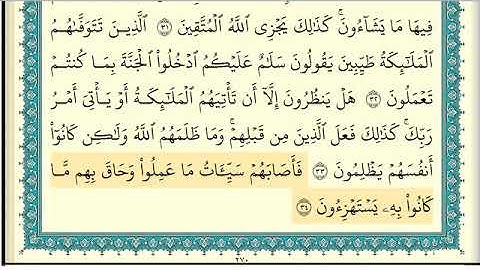 فِيهَا مَا يَشَآءُونَۚ كَذَٰلِكَ يَجْزِى ٱللَّهُ ٱلْمُتَّقِينَ ٣١ ٱلَّذِينَ تَتَوَفَّىٰهُمُ
ٱلْمَلَٰٓئِكَةُ طَيِّبِينَ يَقُولُونَ سَلَٰمٌ عَلَيْكُمُ ٱدْخُلُوا۟ ٱلْجَنَّةَ بِمَا كُنتُمْ
تَعْمَلُونَ ٣٢ هَلْ يَنظُرُونَ إِلَّآ أَن تَأْتِيَهُمُ ٱلْمَلَٰٓئِكَةُ أَوْ يَأْتِىَ أَمْرُ
رَبِّكَۚ كَذَٰلِكَ فَعَلَ ٱلَّذِينَ مِن قَبْلِهِمْۚ وَمَا ظَلَمَهُمُ ٱللَّهُ وَلَٰكِن كَانُوٓا۟
أَنفُسَهُمْ يَظْلِمُونَ ٣٣ فَأَصَابَهُمْ سَيِّـَٔاتُ مَا عَمِلُوا۟ وَحَاقَ بِهِم مَّا
كَانُوا۟ بِهِۦ يَسْتَهْزِءُونَ ٣٤
٢٧٠